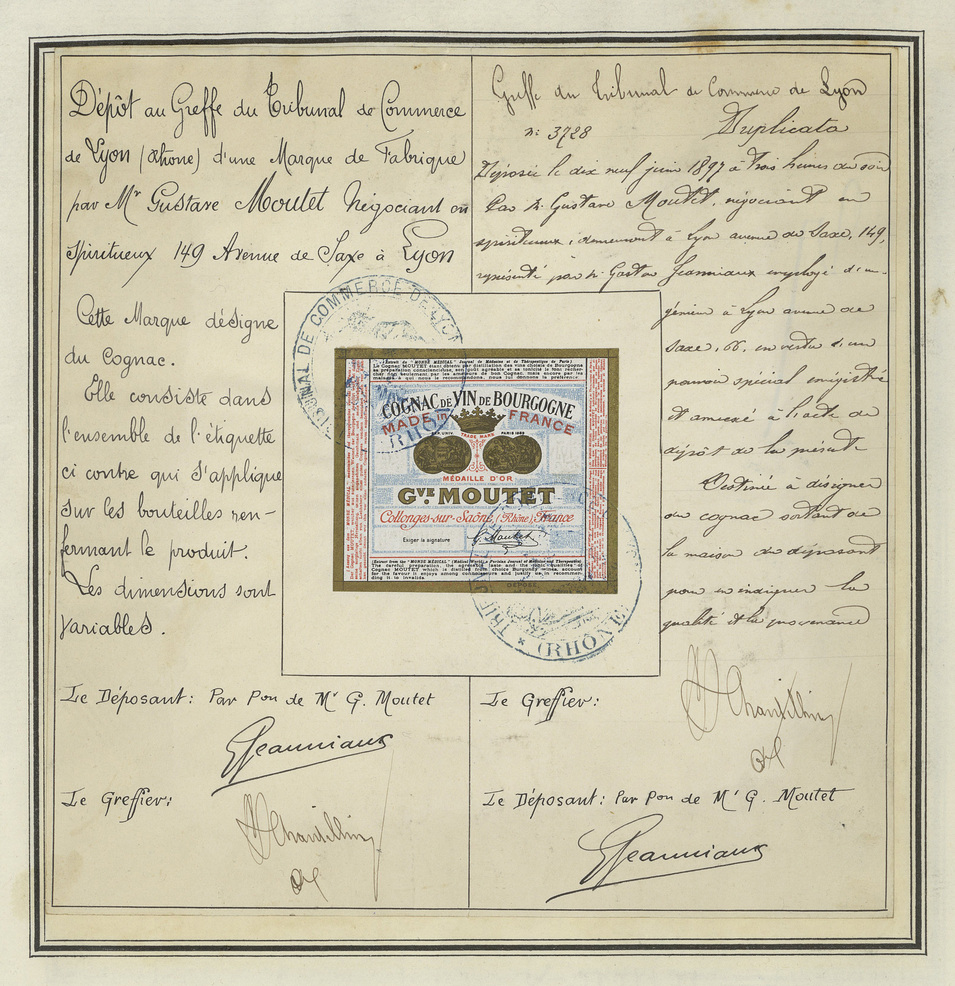 Dépôt au Greffe du Tribunal de Commerce
de Lyon (Rhône) d'une Marque de Fabrique
par Mr Gustave Moutet Négociant en
Spiritueux 149 Avenue de Saxe à Lyon
Cette Marque désigne
du Cognac.
Elle consiste dans
l'ensemble de l'étiquette
ci contre qui s'applique
sur les bouteilles ren-
fermant le produit.
Les dimensions sont
variables.
Le Déposant: Par Pon de Mr G. Moutet
GJeanniaux
Le Greffier:
Greffe du Tribunal de Commerce de Lyon
N: 3728
Duplicata
Déposée le dix neuf juin 1897 à trois heures du soir
Par M. Gustave Moutet, négociant en
spiritueux, demeurant à Lyon avenue de Saxe, 149,
représenté par M. Gaston Jeanniaux employé d'in-
génieur à Lyon avenue de
Saxe, 66, en vertu d'un
pouvoir spécial enregistré
et annexé à l'acte de
dépôt de la présente
Destinée à désigner
du cognac sortant de
la maison du déposant
pour en indiquer la
qualité et la provenance
Le Greffier:
Le Déposant: Par Pon de Mr G. Moutet
GJeanniaux
TRIBUNAL DE COMMERCE DE LYON
(RHÔNE)
COGNAC DE VIN DE BOURGOGNE
MADE in FRANCE
TRADE MARK
PARIS 1889
MÉDAILLE D'OR
GVE MOUTET
Collonges-sur-Saône, (Rhône) France
Exiger la signature
G. Moutet
The careful preparation, the agreeable taste and the tonic qualities of
Cognac MOUTET which is distilled from choice Burgundy wines, account
for the favour it enjoys among connoisseurs and justify us in recommen-
ding it to invalids.
DÉPOSÉ
* (RHÔNE)